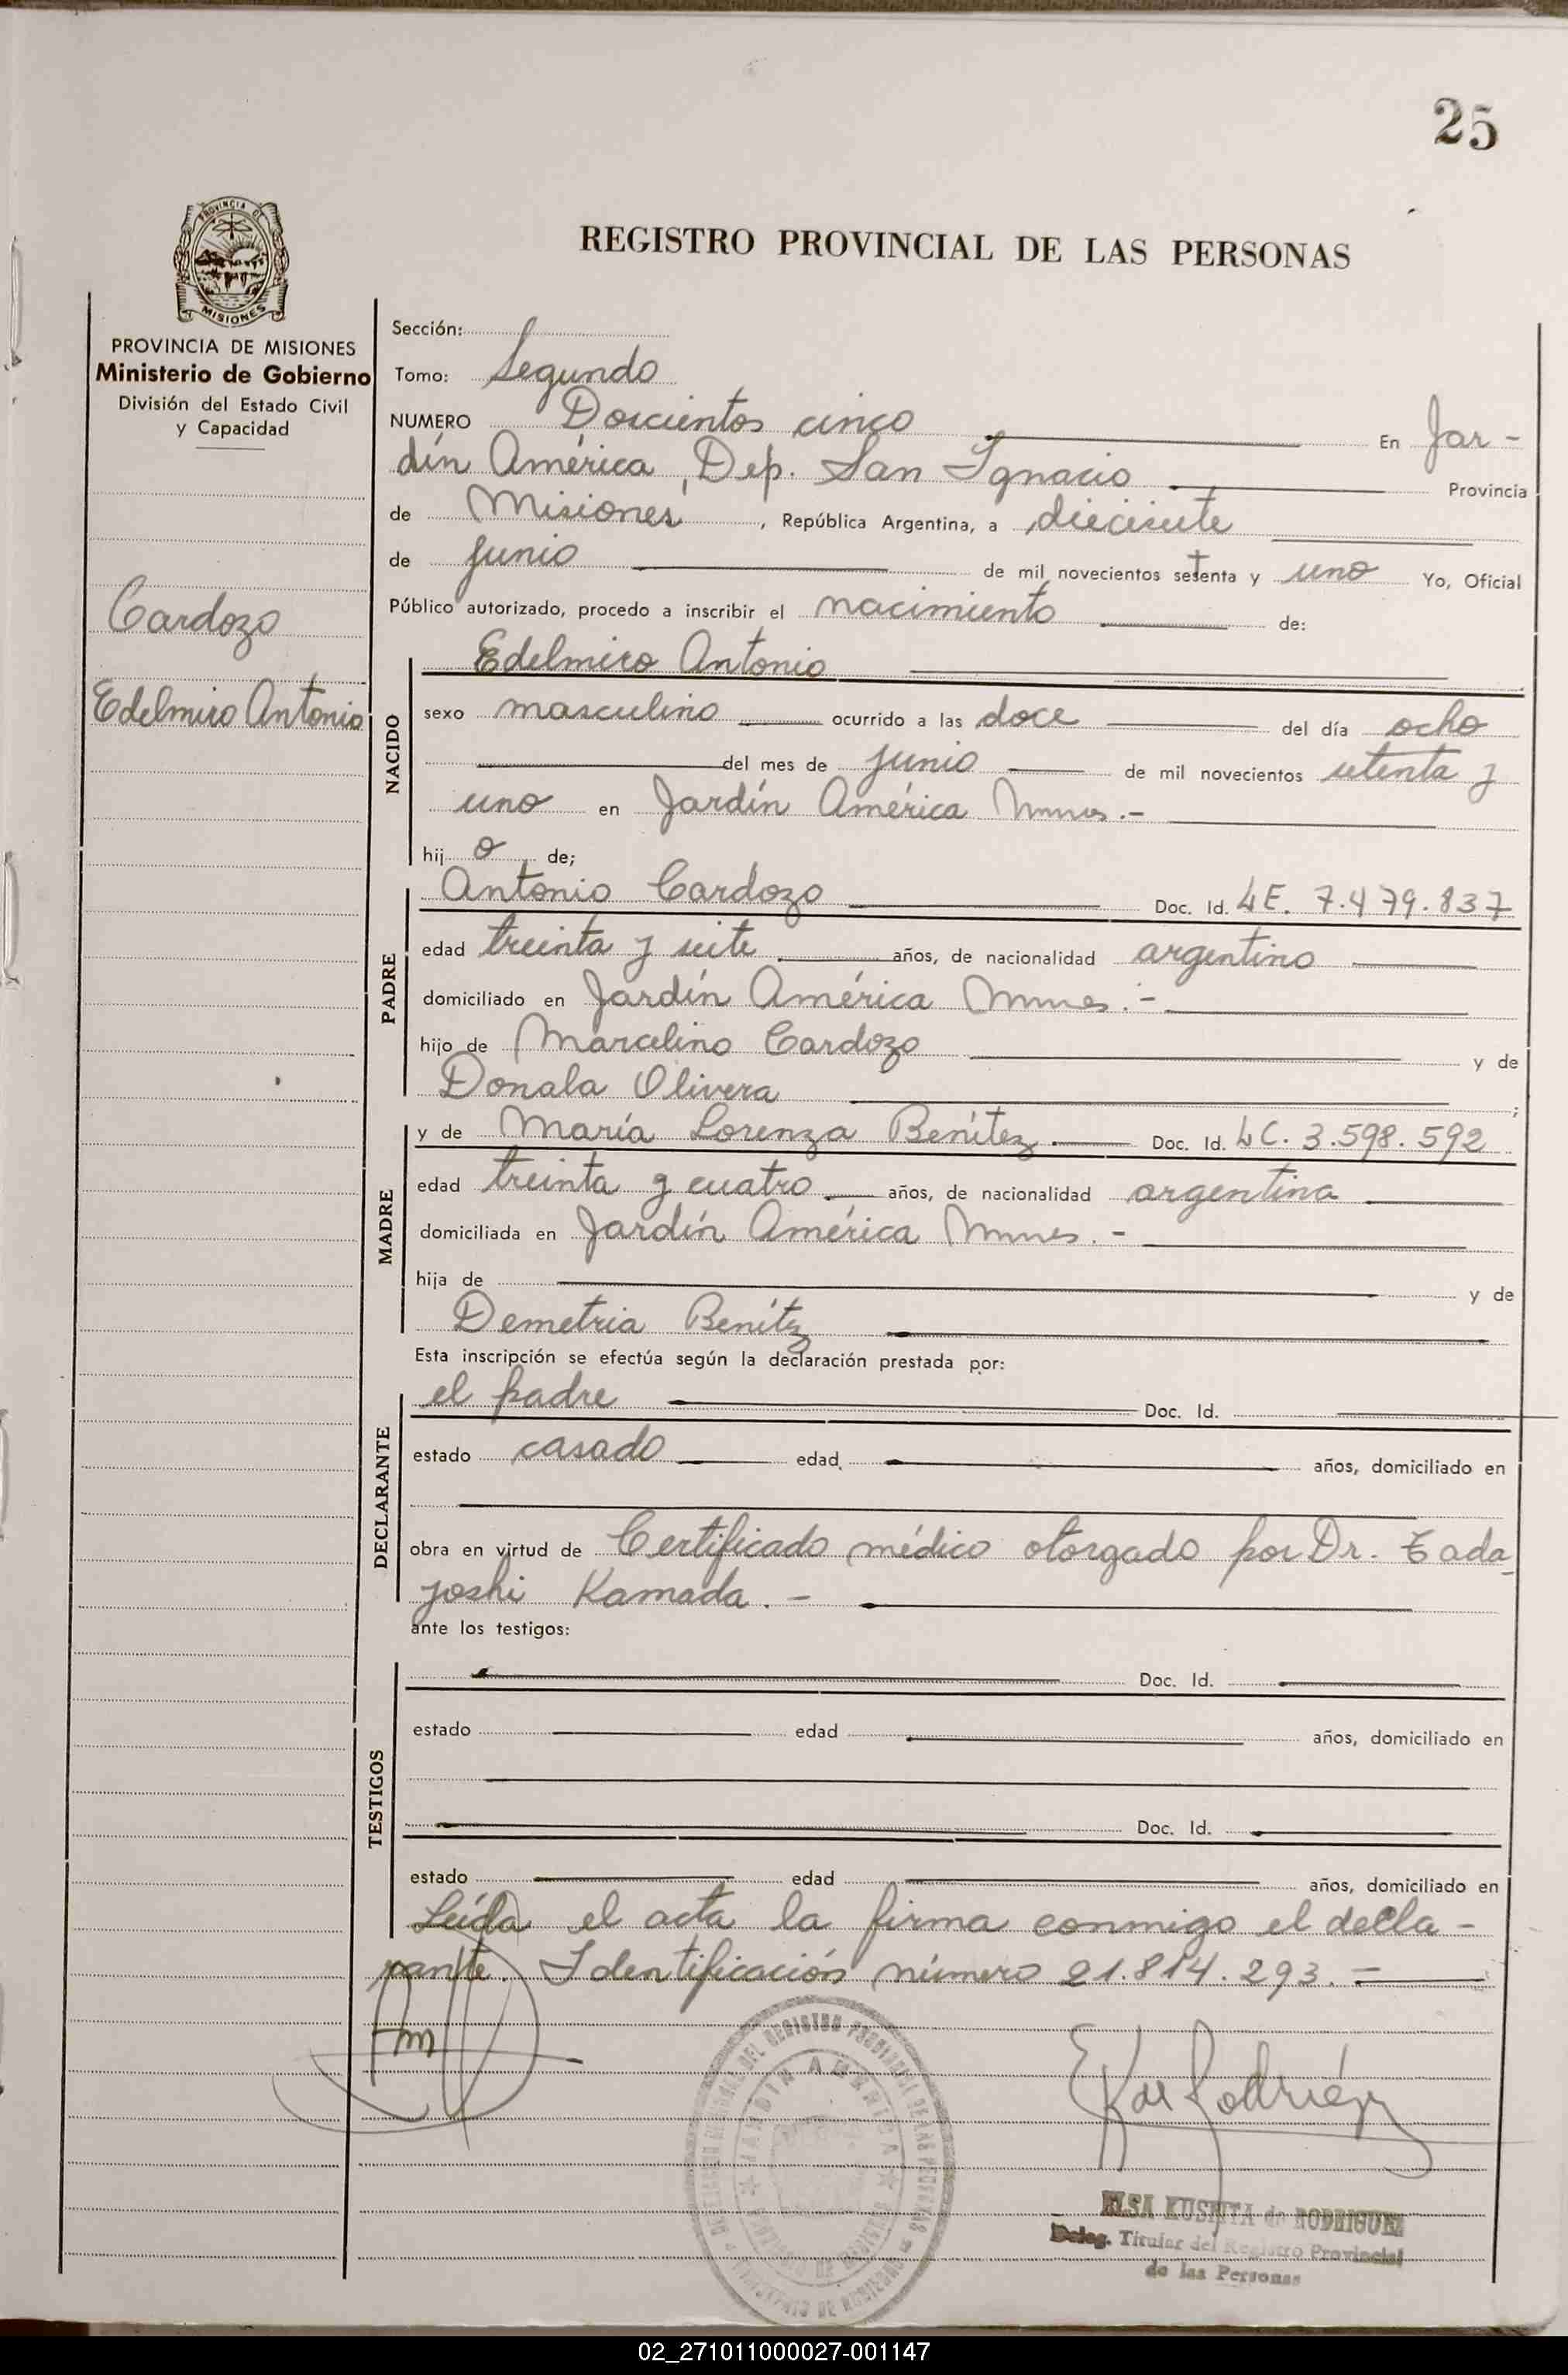 25
REGISTRO PROVINCIAL DE LAS PERSONAS
PROVINCIA DE MISIONES
PROVINCIA DE MISIONES
Ministerio de Gobierno
División del Estado Civil
y Capacidad
Cardozo
Edelmiro Antonio
Sección:
Tomo: Segundo
NUMERO Doscientos cinco En Jar-
dín América, Dep. San Ignacio Provincia
de Misiones, República Argentina, a diecisiete
de junio de mil novecientos setenta y uno Yo, Oficial
Público autorizado, procedo a inscribir el nacimiento de:
NACIDO
Edelmiro Antonio
sexo masculino ocurrido a las doce del día ocho
del mes de junio de mil novecientos setenta y
uno en Jardín América Mnes.-
hijo de;
PADRE
Antonio Cardozo Doc. Id. LE. 7.479.837
edad treinta y siete años, de nacionalidad argentino
domiciliado en Jardín América Mnes.-
hijo de Marcelino Cardozo y de
Donala Olivera ;
MADRE
y de María Lorenza Benítez Doc. Id. LC. 3.598.592
edad treinta y cuatro años, de nacionalidad argentina
domiciliada en Jardín América Mnes.-
hija de y de
Demetria Benítz
Esta inscripción se efectúa según la declaración prestada por:
DECLARANTE
el padre Doc. Id.
estado casado edad años, domiciliado en
obra en virtud de Certificado médico otorgado por Dr. Tada
yoshi Kamada.-
ante los testigos:
TESTIGOS
Doc. Id.
estado edad años, domiciliado en
Doc. Id.
estado edad años, domiciliado en
Leída el acta la firma conmigo el decla-
rante. Identificación número 21.814.293.-
JARDIN AMERICA
ELSA KUSNITA de RODRIGUEZ
Deleg. Titular del Registro Provincial
de las Personas
02_271011000027-001147